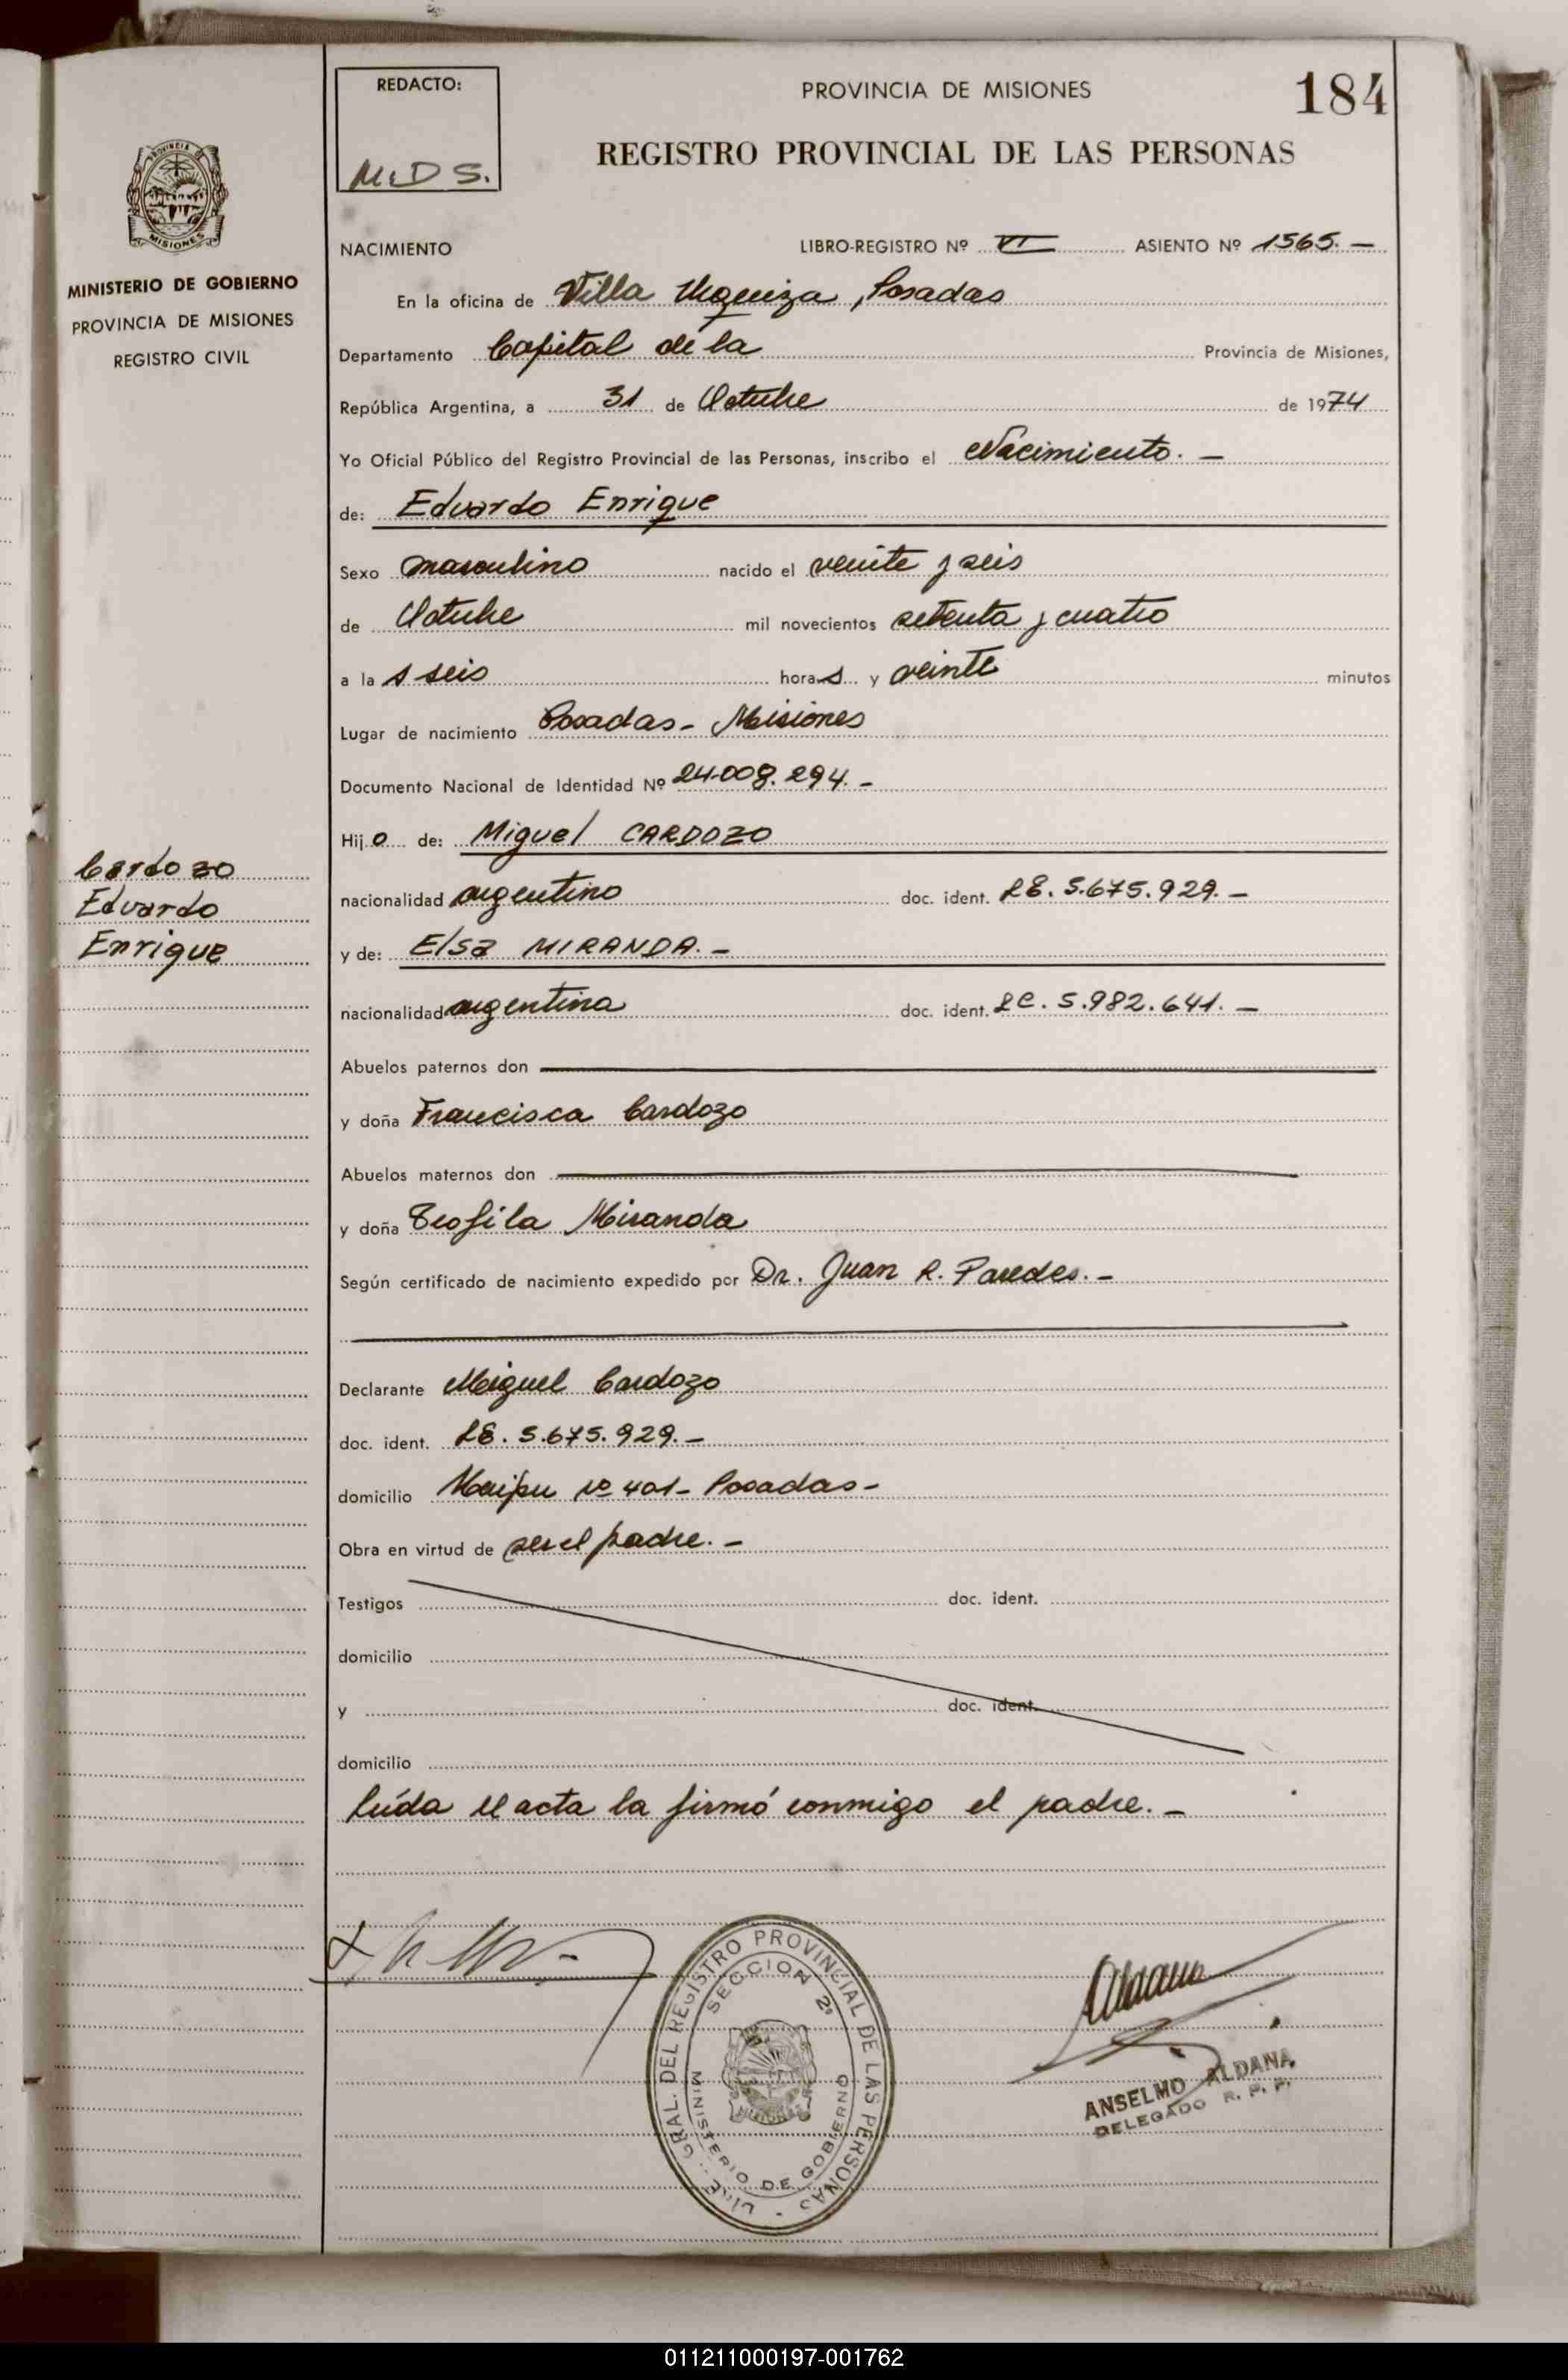 REDACTO:
M.D S.
PROVINCIA DE MISIONES
184
REGISTRO PROVINCIAL DE LAS PERSONAS
PROVINCIA DE
MISIONES
MINISTERIO DE GOBIERNO
PROVINCIA DE MISIONES
REGISTRO CIVIL
NACIMIENTO LIBRO-REGISTRO Nº VI ASIENTO Nº 1565.-
En la oficina de Villa Urquiza, Posadas
Departamento Capital de la Provincia de Misiones,
República Argentina, a 31 de Octubre de 1974
Yo Oficial Público del Registro Provincial de las Personas, inscribo el Nacimiento.-
de: Eduardo Enrique
Sexo masculino nacido el veinte y seis
de Octubre mil novecientos setenta y cuatro
a la s seis hora s y veinte minutos
Lugar de nacimiento Posadas- Misiones
Documento Nacional de Identidad Nº 24.008.294.-
Hij o de: Miguel CARDOZO
Cardozo
Eduardo
Enrique
nacionalidad argentino doc. ident. LE. 5.675.929.-
y de: Elsa MIRANDA.-
nacionalidad argentina doc. ident. LC. 5.982.641.-
Abuelos paternos don
y doña Francisca Cardozo
Abuelos maternos don
y doña Teofila Miranda
Según certificado de nacimiento expedido por Dr. Juan R. Paredes.-
Declarante Miguel Cardozo
doc. ident. LE. 5.675.929.-
domicilio Maipu nº 401- Posadas-
Obra en virtud de ser el padre.-
Testigos doc. ident.
domicilio
y doc. ident.
domicilio
Leída el acta la firmó conmigo el padre.-
GRAL. DEL REGISTRO PROVINCIAL DE LAS PERSONAS
SECCION 2ª
MINISTERIO DE GOBIERNO
MISIONES
ANSELMO ALDANA
DELEGADO R. P. P.
011211000197-001762